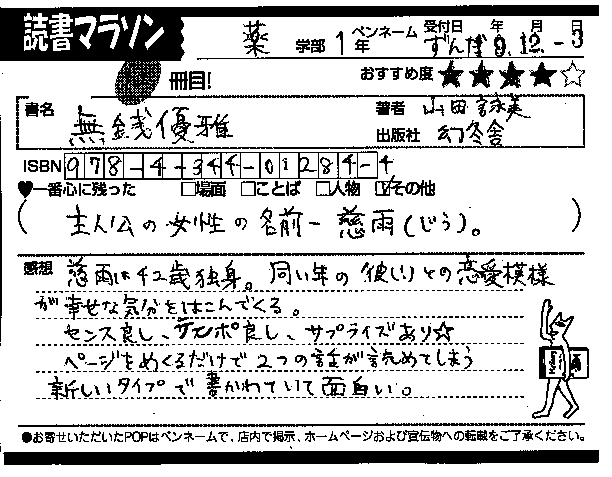 読書マラソン
薬 学部 1年 ペンネーム ずんだ 受付日 9年12月-3日
冊目!
おすすめ度 ★★★★☆
書名 無銭優雅
著者 山田詠美
出版社 幻冬舎
ISBN 978-4-344-01284-4
♥一番心に残った □場面 □ことば □人物 ☑その他
(主人公の女性の名前-慈雨(じう)。)
感想 慈雨は42歳独身。同い年の彼との恋愛模様
が幸せな気分をはこんでくる。
センス良し、テンポ良し、サプライズあり☆
ページをめくるだけで2つの話が読めてしまう
新しいタイプで書かれていて面白い。
●お寄せいただいたPOPはペンネームで、店内で掲示、ホームページおよび宣伝物への転載をご了承ください。